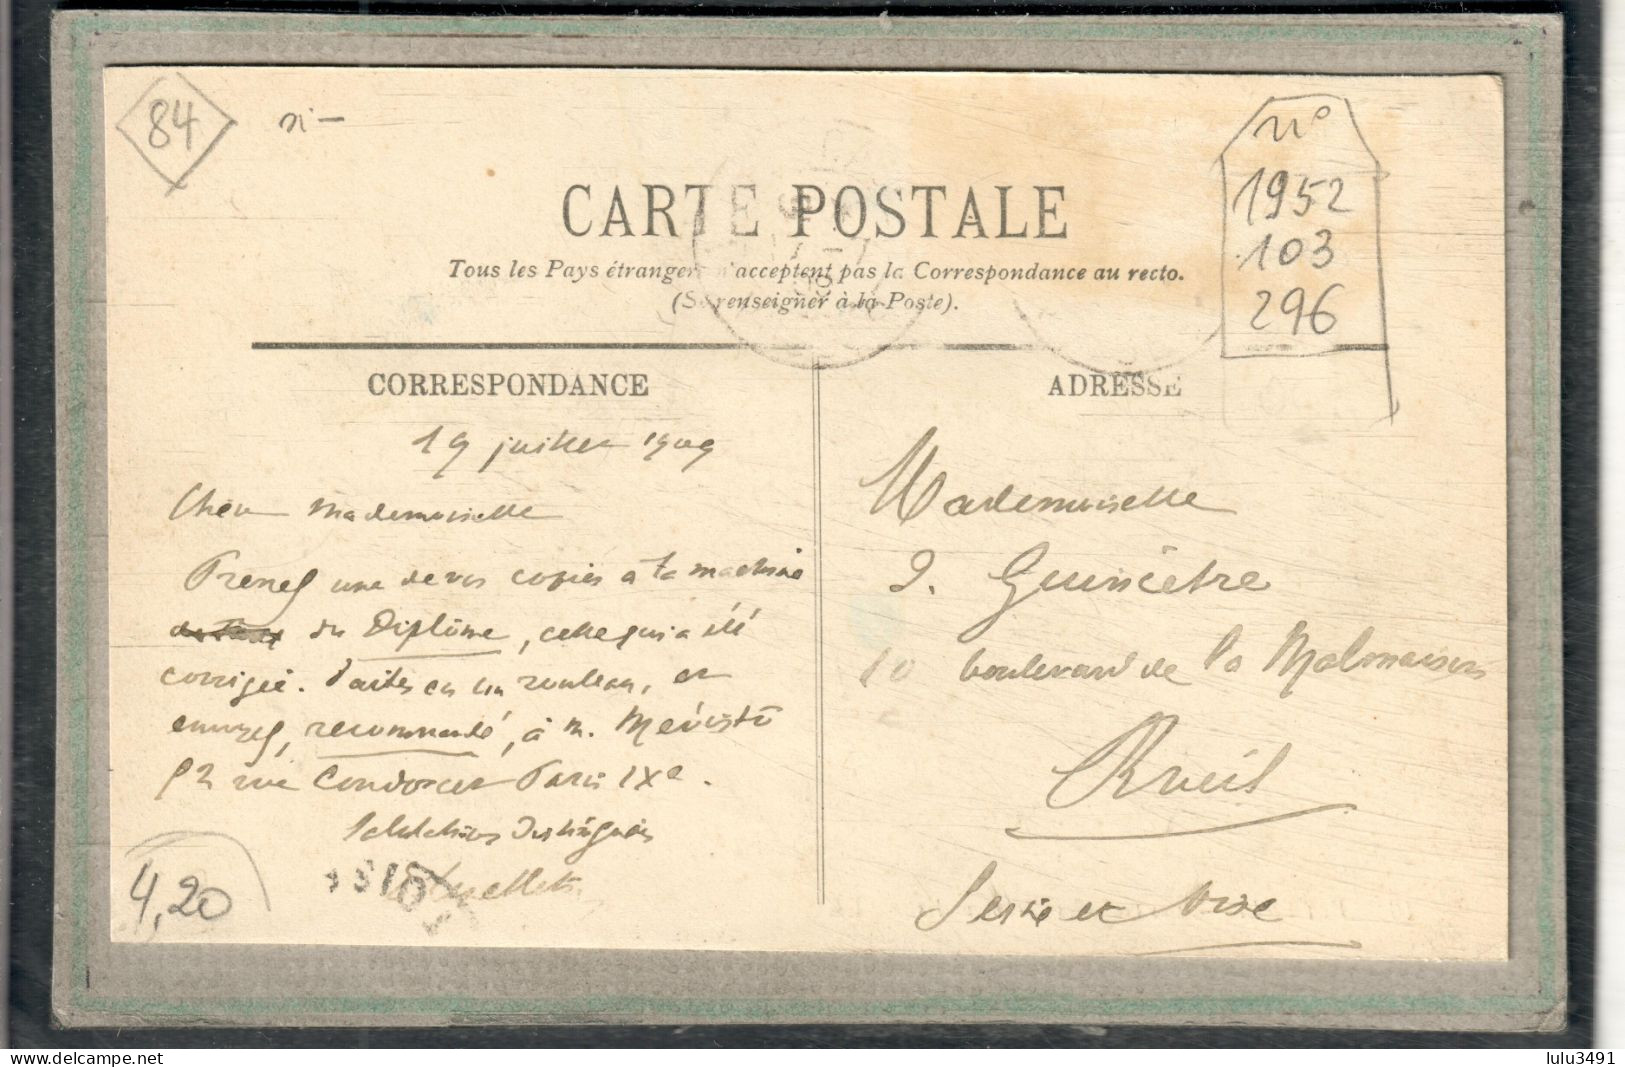 84
ni -
n°
1952
103
296
CARTE POSTALE
Tous les Pays étrangers n'acceptent pas la Correspondance au recto.
(Se renseigner à la Poste).
CORRESPONDANCE
ADRESSE
19 juillet 1909
Chère Mademoiselle
Prenez une de vos copies à la machine
du Diplôme, celle qui a été
corrigée. Faites en un rouleau, et
envoyez, recommandé, à M. Mévisto
52 rue Condorcet Paris IXe.
Salutations distinguées
4,20
Mademoiselle
J. Guincêtre
10 boulevard de la Malmaison
Rueil
Seine et Oise
lulu3491